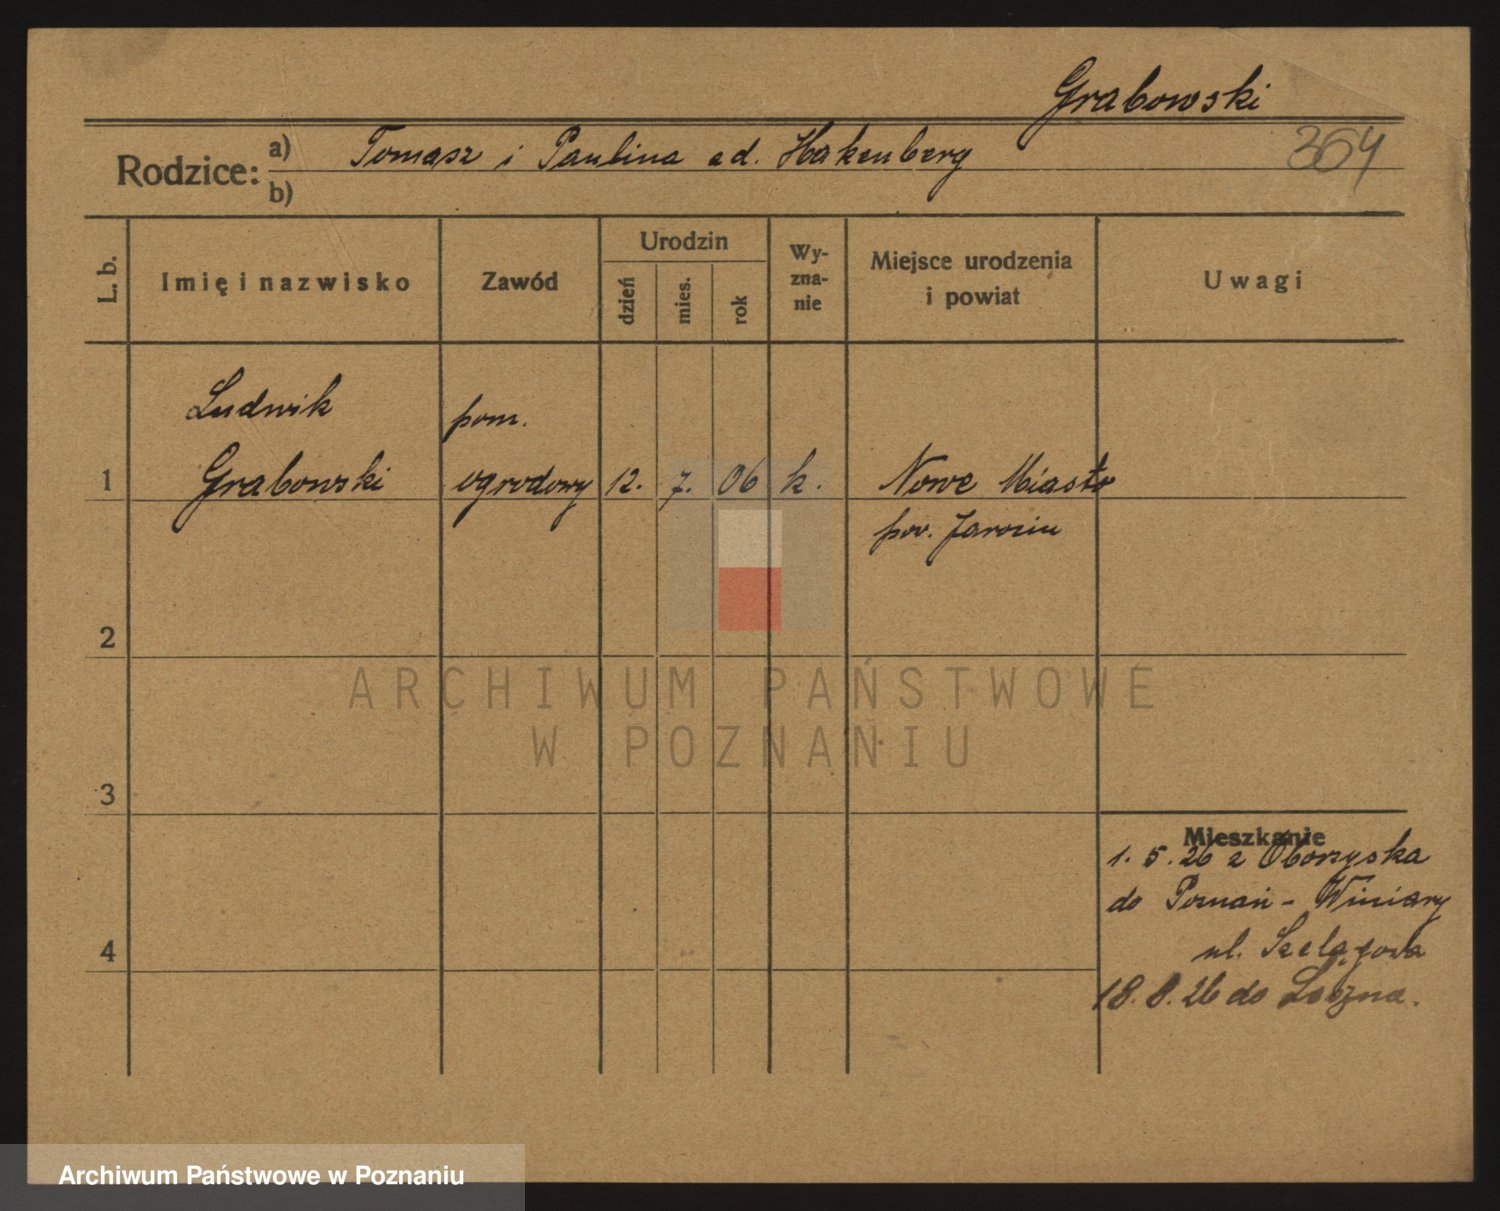 Grabowski
364
Rodzice: a) Tomasz i Paulina zd. Hakenberg
b)
L. b. Imię i nazwisko Zawód Urodzin dzień mies. rok Wy-zna-nie Miejsce urodzenia i powiat Uwagi
Ludwik pom.
1 Grabowski ogrodowy 12. 7. 06 k. Nowe Miasto
pow. Jarocin
2
ARCHIWUM PAŃSTWOWE
W POZNANIU
3
Mieszkanie
1. 5. 26 z Oborzyska
do Poznań - Winiary
4
ul. Szelągowa
18. 8. 26 do
Archiwum Państwowe w Poznaniu